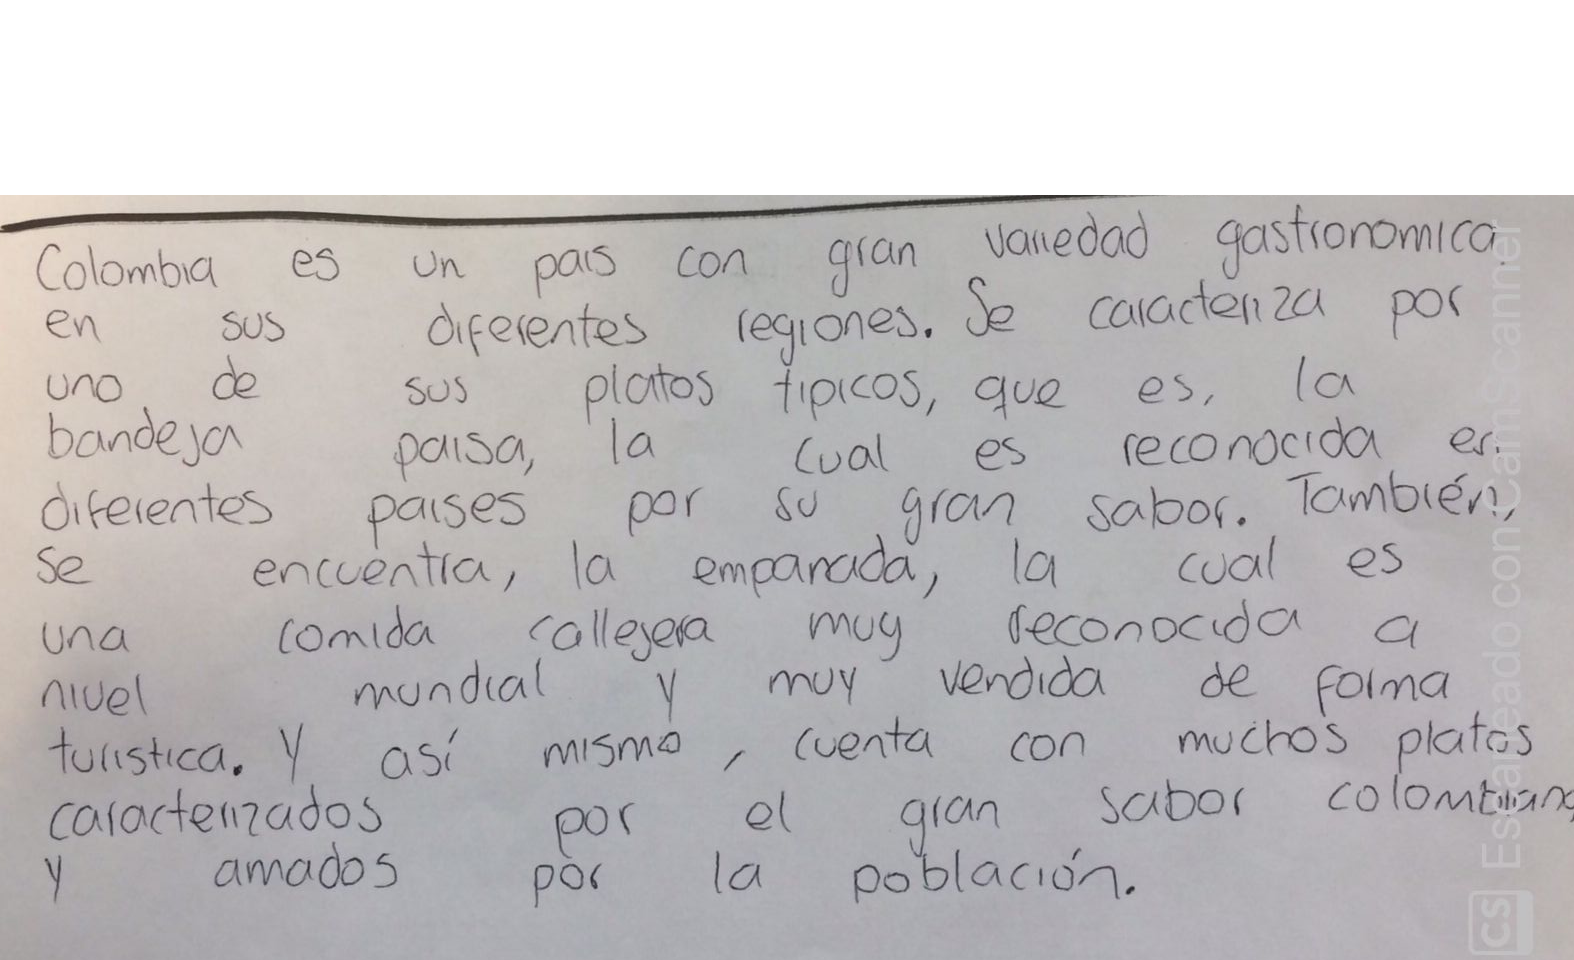 Colombia es un pais con gran variedad gastronomica.
en sus diferentes regiones. Se caracteriza por
uno de sus platos tipicos, que es, la
bandeja paisa, la cual es reconocida en
diferentes paises por su gran sabor. También,
se encuentra, la empanada, la cual es
una comida callejera muy reconocida a
nivel mundial y muy vendida de forma
turistica. Y así mismo, cuenta con muchos platos
caracterizados por el gran sabor colombiano
y amados por la población.
CS Escaneado con CamScanner